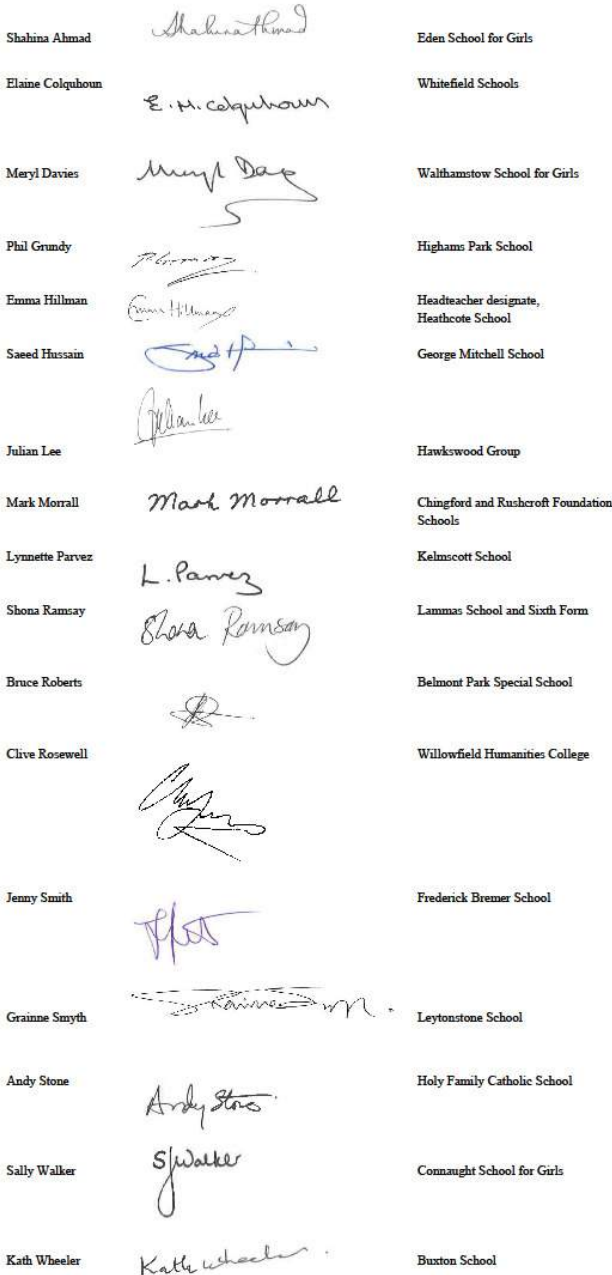 Shahina Ahmad Shahina Ahmad Eden School for Girls
Elaine Colquhoun Whitefield Schools
E. M. Colquhoun
Meryl Davies Meryl Walthamstow School for Girls
Phil Grundy Highams Park School
Emma Hillman Emma Hillman Headteacher designate,
Heathcote School
Saeed Hussain George Mitchell School
Julian Lee
Julian Lee Hawkswood Group
Mark Morrall Mark Morrall Chingford and Rushcroft Foundation
Schools
Lynnette Parvez Kelmscott School
L. Parvez
Shona Ramsay Shona Ramsay Lammas School and Sixth Form
Bruce Roberts Belmont Park Special School
Clive Rosewell Willowfield Humanities College
Jenny Smith Frederick Bremer School
Grainne Smyth Leytonstone School
Andy Stone Holy Family Catholic School
Andy Stone
Sally Walker SJWalker Connaught School for Girls
Kath Wheeler Kath Wheeler Buxton School